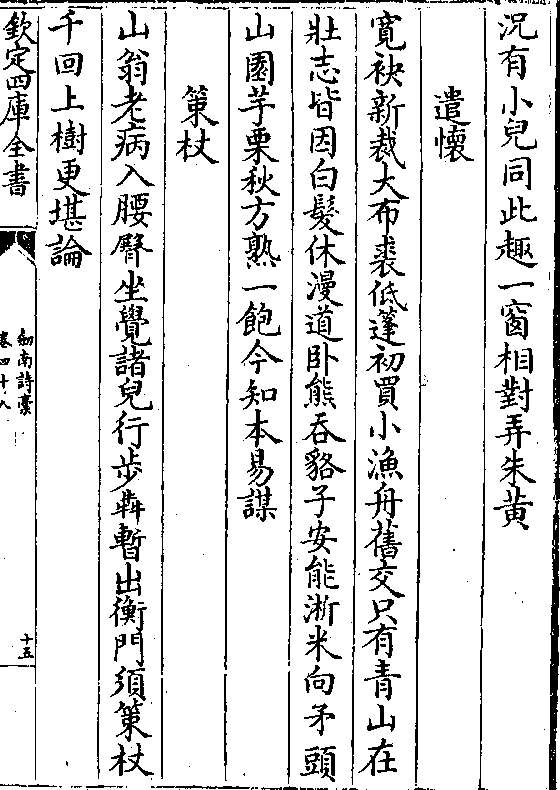 況有小兒同此趣一窗相對弄朱黄
遣懷
寛袂新裁大布裘低蓬初買小漁舟舊交只有青山在
壯志皆因白髮休漫道卧熊吞貉子安能淅米向矛頭
山園芋栗秋方熟一飽今知本易謀
策杖
山翁老病入腰腎坐覺諸兒行步犇暫出衡門須策杖
千回上樹更堪論
欽定四庫全書
劒南詩稾
卷四十八
十五